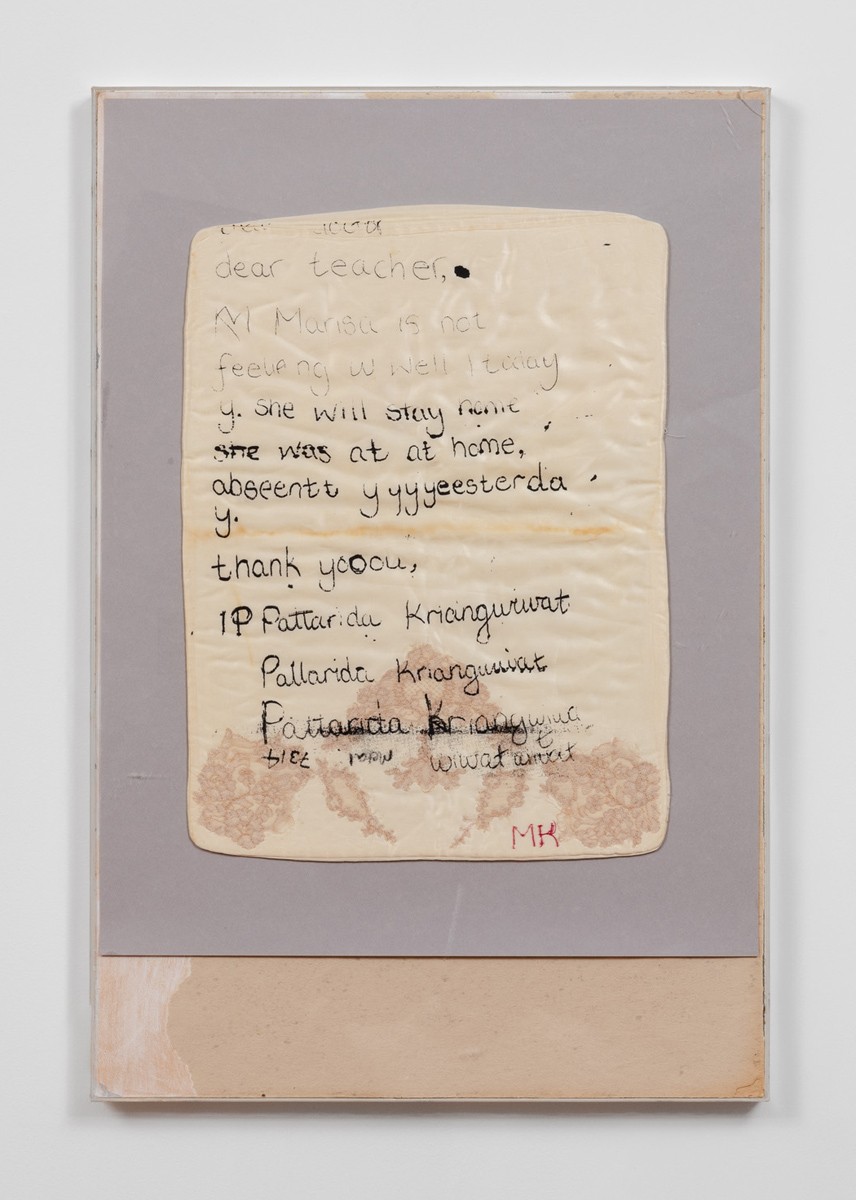 dear
dear teacher,
M Marisa is not
feeling w well I today
y. she will stay home
she was at at home,
abseentt yyyyeesterda
y.
thank yooou,
1P Pattarida Kriangwiwat
Pallarida Kriangwiwat
Pattarida Kriangwiwa
7314 wiwat
MK